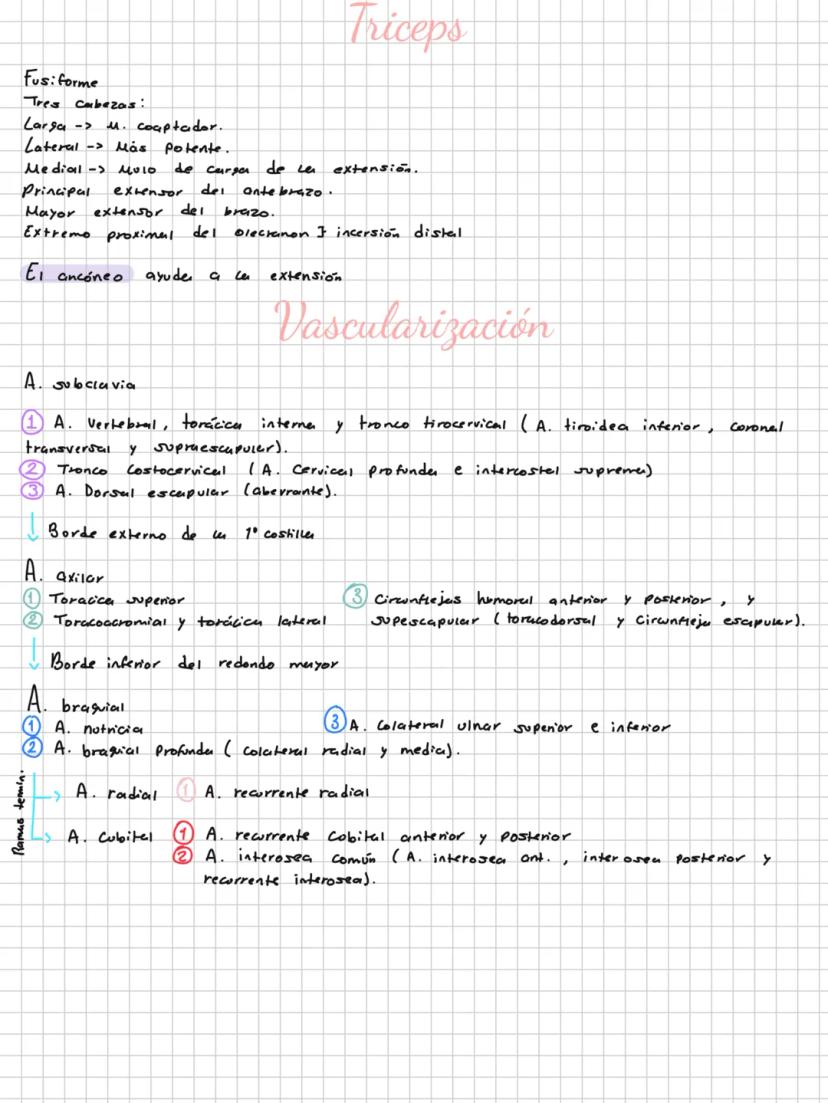 Triceps
Fusiforme
Tres cabezas:
Larga -> M. coaptador.
Lateral -> Más potente.
Medial -> Mulo de carga de la extensión.
Principal extensor del antebrazo.
Mayor extensor del brazo.
Extremo proximal del olecranon } incersión distal
El ancóneo ayuda a la extensión
Vascularización
A. subclavia
① A. Vertebral, torácica interna y tronco tirocervical (A. tiroidea inferior, coronal
transversal y supraescapular).
② Tronco Costocervical (A. Cervical profunda e intercostal suprema)
③ A. Dorsal escapular (aberrante).
↓ Borde externo de la 1° costilla
A. axilar
① Toracica superior
② Toracoacromial y torácica lateral
③ Circunflejas humoral anterior y posterior, y
supescapular (toracodorsal y Circunfleja escapular).
↓ Borde inferior del redondo mayor
A. braquial
① A. nutricia
② A. braquial Profunda (colateral radial y media).
③ A. Colateral ulnar superior e inferior
Ramas temin.
A. radial ① A. recurrente radial
A. Cubital ① A. recurrente cobital anterior y posterior
② A. interosea común (A. interosea ant., interosea posterior y
recurrente interosea).